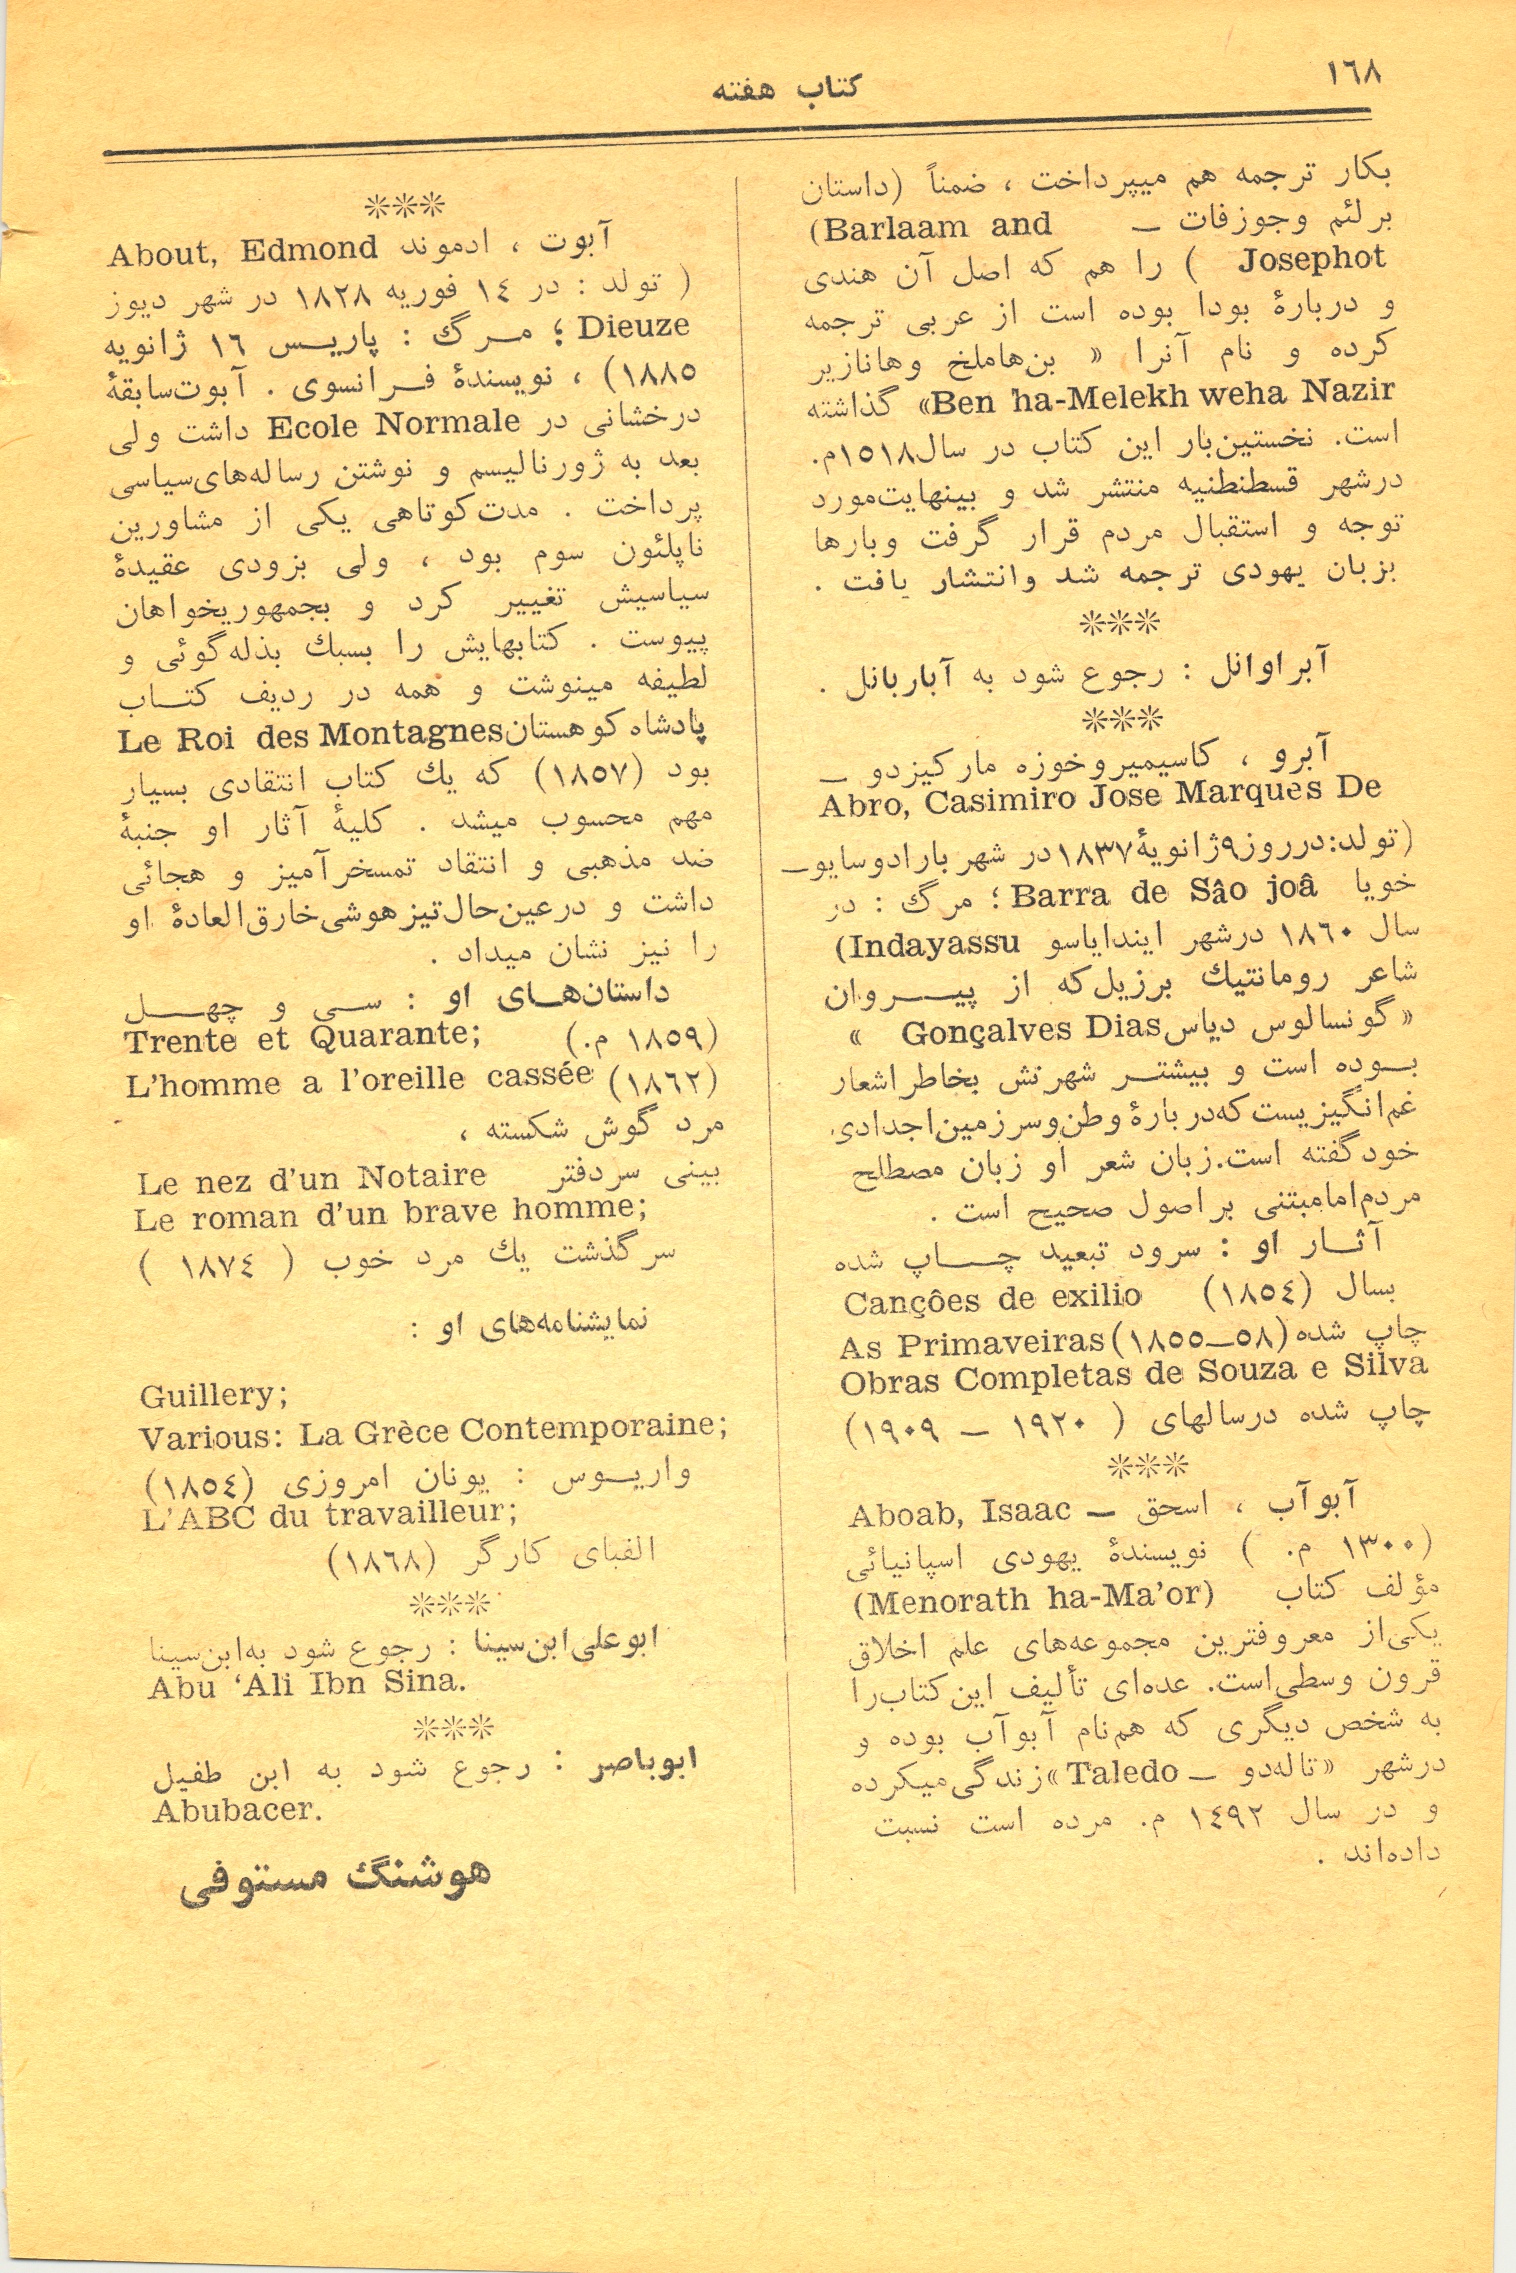 ۱٦۸
کتاب هفته
بکار ترجمه هم میپرداخت ، ضمناً (داستان
برلئم وجوزفات — Barlaam and)
Josephot ) را هم که اصل آن هندی
و دربارهٔ بودا بوده است از عربی ترجمه
کرده و نام آنرا « بن‌هاملخ وهانازیر
Ben ha-Melekh weha Nazir» گذاشته
است. نخستین‌بار این کتاب در سال۱۵۱۸م.
درشهر قسطنطنیه منتشر شد و بینهایت‌مورد
توجه و استقبال مردم قرار گرفت وبارها
بزبان یهودی ترجمه شد وانتشار یافت .
***
آبراوانل : رجوع شود به آباربانل .
***
آبرو ، کاسیمیروخوزه مارکیزدو —
Abro, Casimiro Jose Marques De
(تولد:درروز۹ژانویهٔ۱۸۳۷در شهر بارادوسایو—
خویا Barra de Sâo joâ ؛ مرگ : در
سال ۱۸٦۰ درشهر ایندایاسو Indayassu)
شاعر رومانتیك برزیل‌که از پیـــروان
«گونسالوس دیاس Gonçalves Dias »
بــوده است و بیشتــر شهرتش بخاطراشعار
غم‌انگیزیست‌که‌دربارهٔ وطن‌وسرزمین‌اجدادی
خودگفته است.زبان شعر او زبان مصطلح
مردم‌امامبتنی بر اصول صحیح است .
آثــار او : سرود تبعید چـــاپ شده
بسال (۱۸۵٤) Cançôes de exilio
چاپ شده (۵۸—۱۸۵۵) As Primaveiras
Obras Completas de Souza e Silva
چاپ شده درسالهای ( ۱۹۲۰ — ۱۹۰۹)
***
آبوآب ، اسحق — Aboab, Isaac
(۱۳۰۰ م. ) نویسندهٔ یهودی اسپانیائی
مؤلف کتاب (Menorath ha-Ma’or)
یکی‌از معروفترین مجموعه‌های علم اخلاق
قرون وسطی‌است. عده‌ای تألیف این‌کتاب‌را
به شخص دیگری که هم‌نام آبوآب بوده و
درشهر «تاله‌دو — Taledo» زندگی‌میکرده
و در سال ۱٤۹۲ م. مرده است نسبت
داده‌اند .
***
آبوت ، ادموند About, Edmond
( تولد : در ۱٤ فوریه ۱۸۲۸ در شهر دیوز
Dieuze ؛ مــرگ : پاریــس ۱٦ ژانویه
۱۸۸۵) ، نویسندهٔ فــرانسوی . آبوت‌سابقهٔ
درخشانی در Ecole Normale داشت ولی
بعد به ژورنالیسم و نوشتن رساله‌های‌سیاسی
پرداخت . مدت‌کوتاهی یکی از مشاورین
ناپلئون سوم بود ، ولی بزودی عقیدهٔ
سیاسیش تغییر کرد و بجمهوریخواهان
پیوست . کتابهایش را بسبك بذله‌گوئی و
لطیفه مینوشت و همه در ردیف کتــاب
پادشاه کوهستان Le Roi des Montagnes
بود (۱۸۵۷) که یك کتاب انتقادی بسیار
مهم محسوب میشد . کلیهٔ آثار او جنبهٔ
ضد مذهبی و انتقاد تمسخرآمیز و هجائی
داشت و درعین‌حال‌تیزهوشی‌خارق‌العادهٔ او
را نیز نشان میداد .
داستان‌هــای او : ســی و چهــل
(۱۸۵۹ م.) Trente et Quarante;
(۱۸٦۲) L’homme a l’oreille cassée
مرد گوش شکسته ،
بینی سردفتر Le nez d’un Notaire
Le roman d’un brave homme;
سرگذشت یك مرد خوب ( ۱۸۷٤ )
نمایشنامه‌های او :
Guillery;
Various: La Grèce Contemporaine;
واریــوس : یونان امروزی (۱۸۵٤)
L’ABC du travailleur;
الفبای کارگر (۱۸٦۸)
***
ابوعلی‌ابن‌سینا : رجوع شود به‌ابن‌سینا
Abu ‘Ali Ibn Sina.
***
ابوباصر : رجوع شود به ابن طفیل
Abubacer.
هوشنگ مستوفی